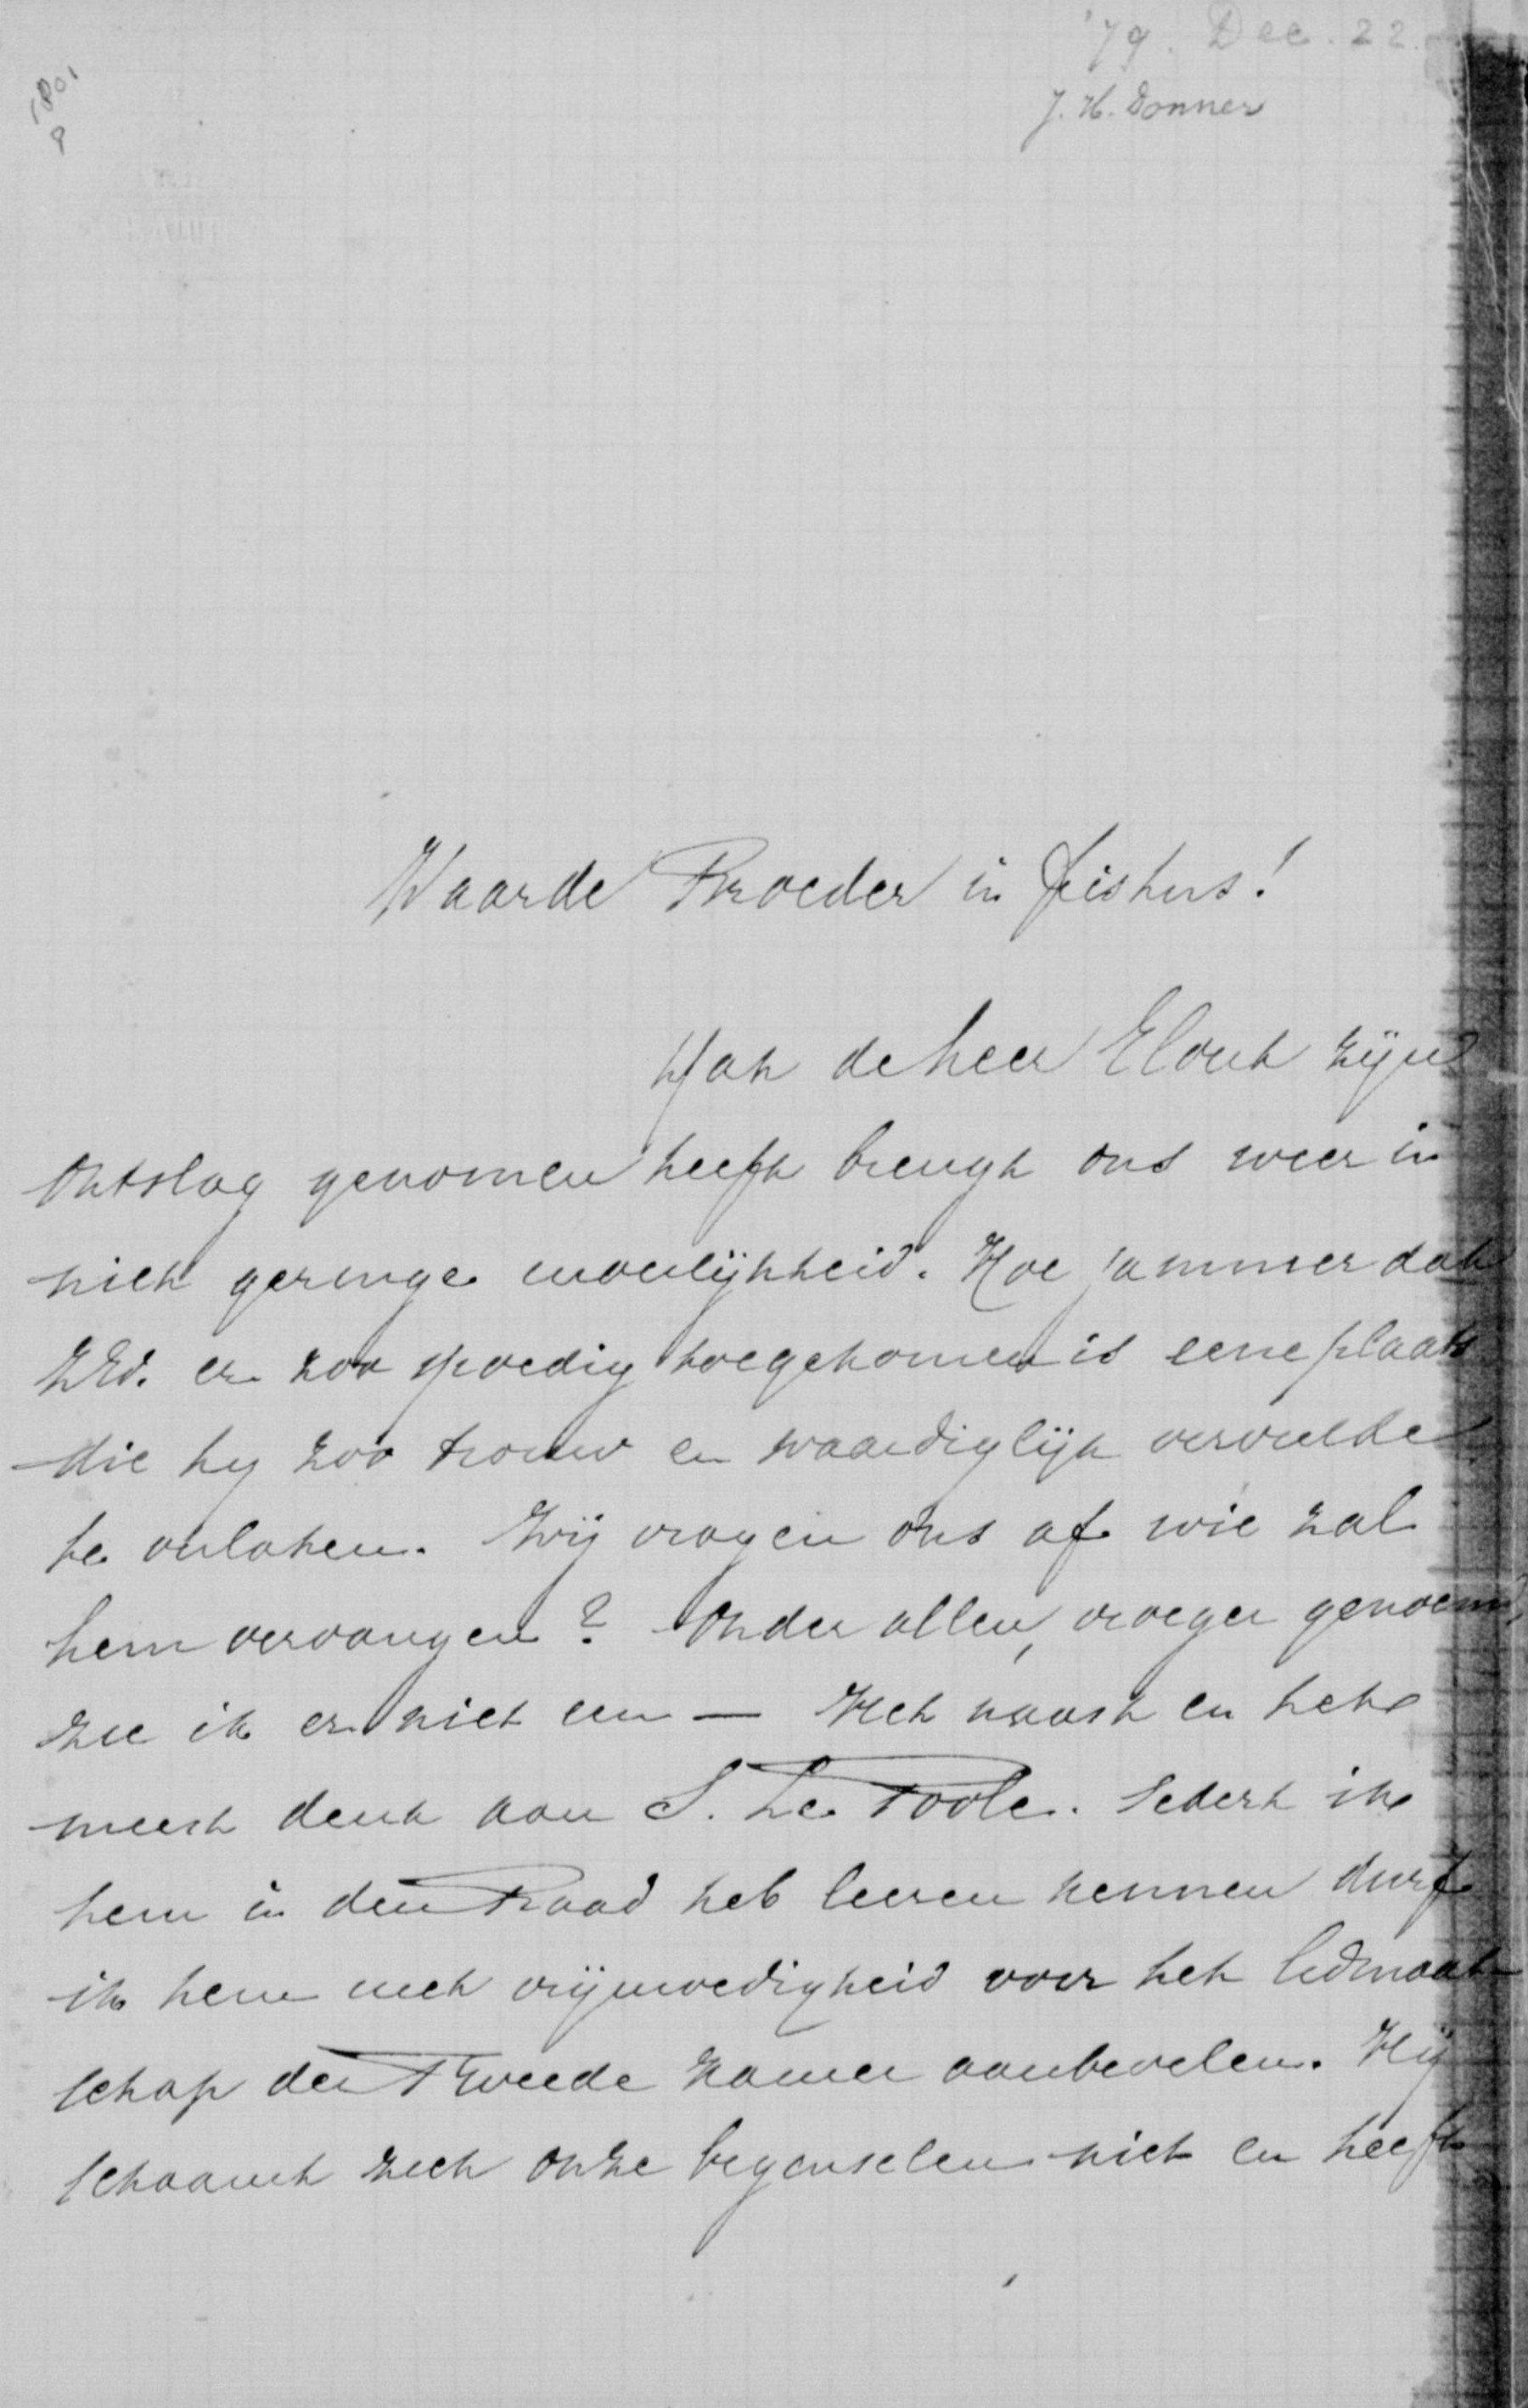 '79. Dec. 22.
J. H. Donner
1801
Waarde Broeder in Christus!
Dat de heer Elout zijn
ontslag genomen heeft brengt ons weer in
niet geringe moeilijkheid. Hoe jammer dat
ZEd. er zoo spoedig toegekomen is eene plaats
die hy zoo trouw en waardiglijk vervulde
te verlaten. Wij vragen ons af wie zal
hem vervangen? Onder allen, vroeger genoemd,
zie ik er niet een — Het naast en het
meest denk aan S. Le Poole. Sedert ik
hem in den Raad heb leeren kennen durf
ik hem met vrijmoedigheid voor het lidmaat-
schap der Tweede Kamer aanbevelen. Hij
schaamt zich onze beginselen niet en heeft